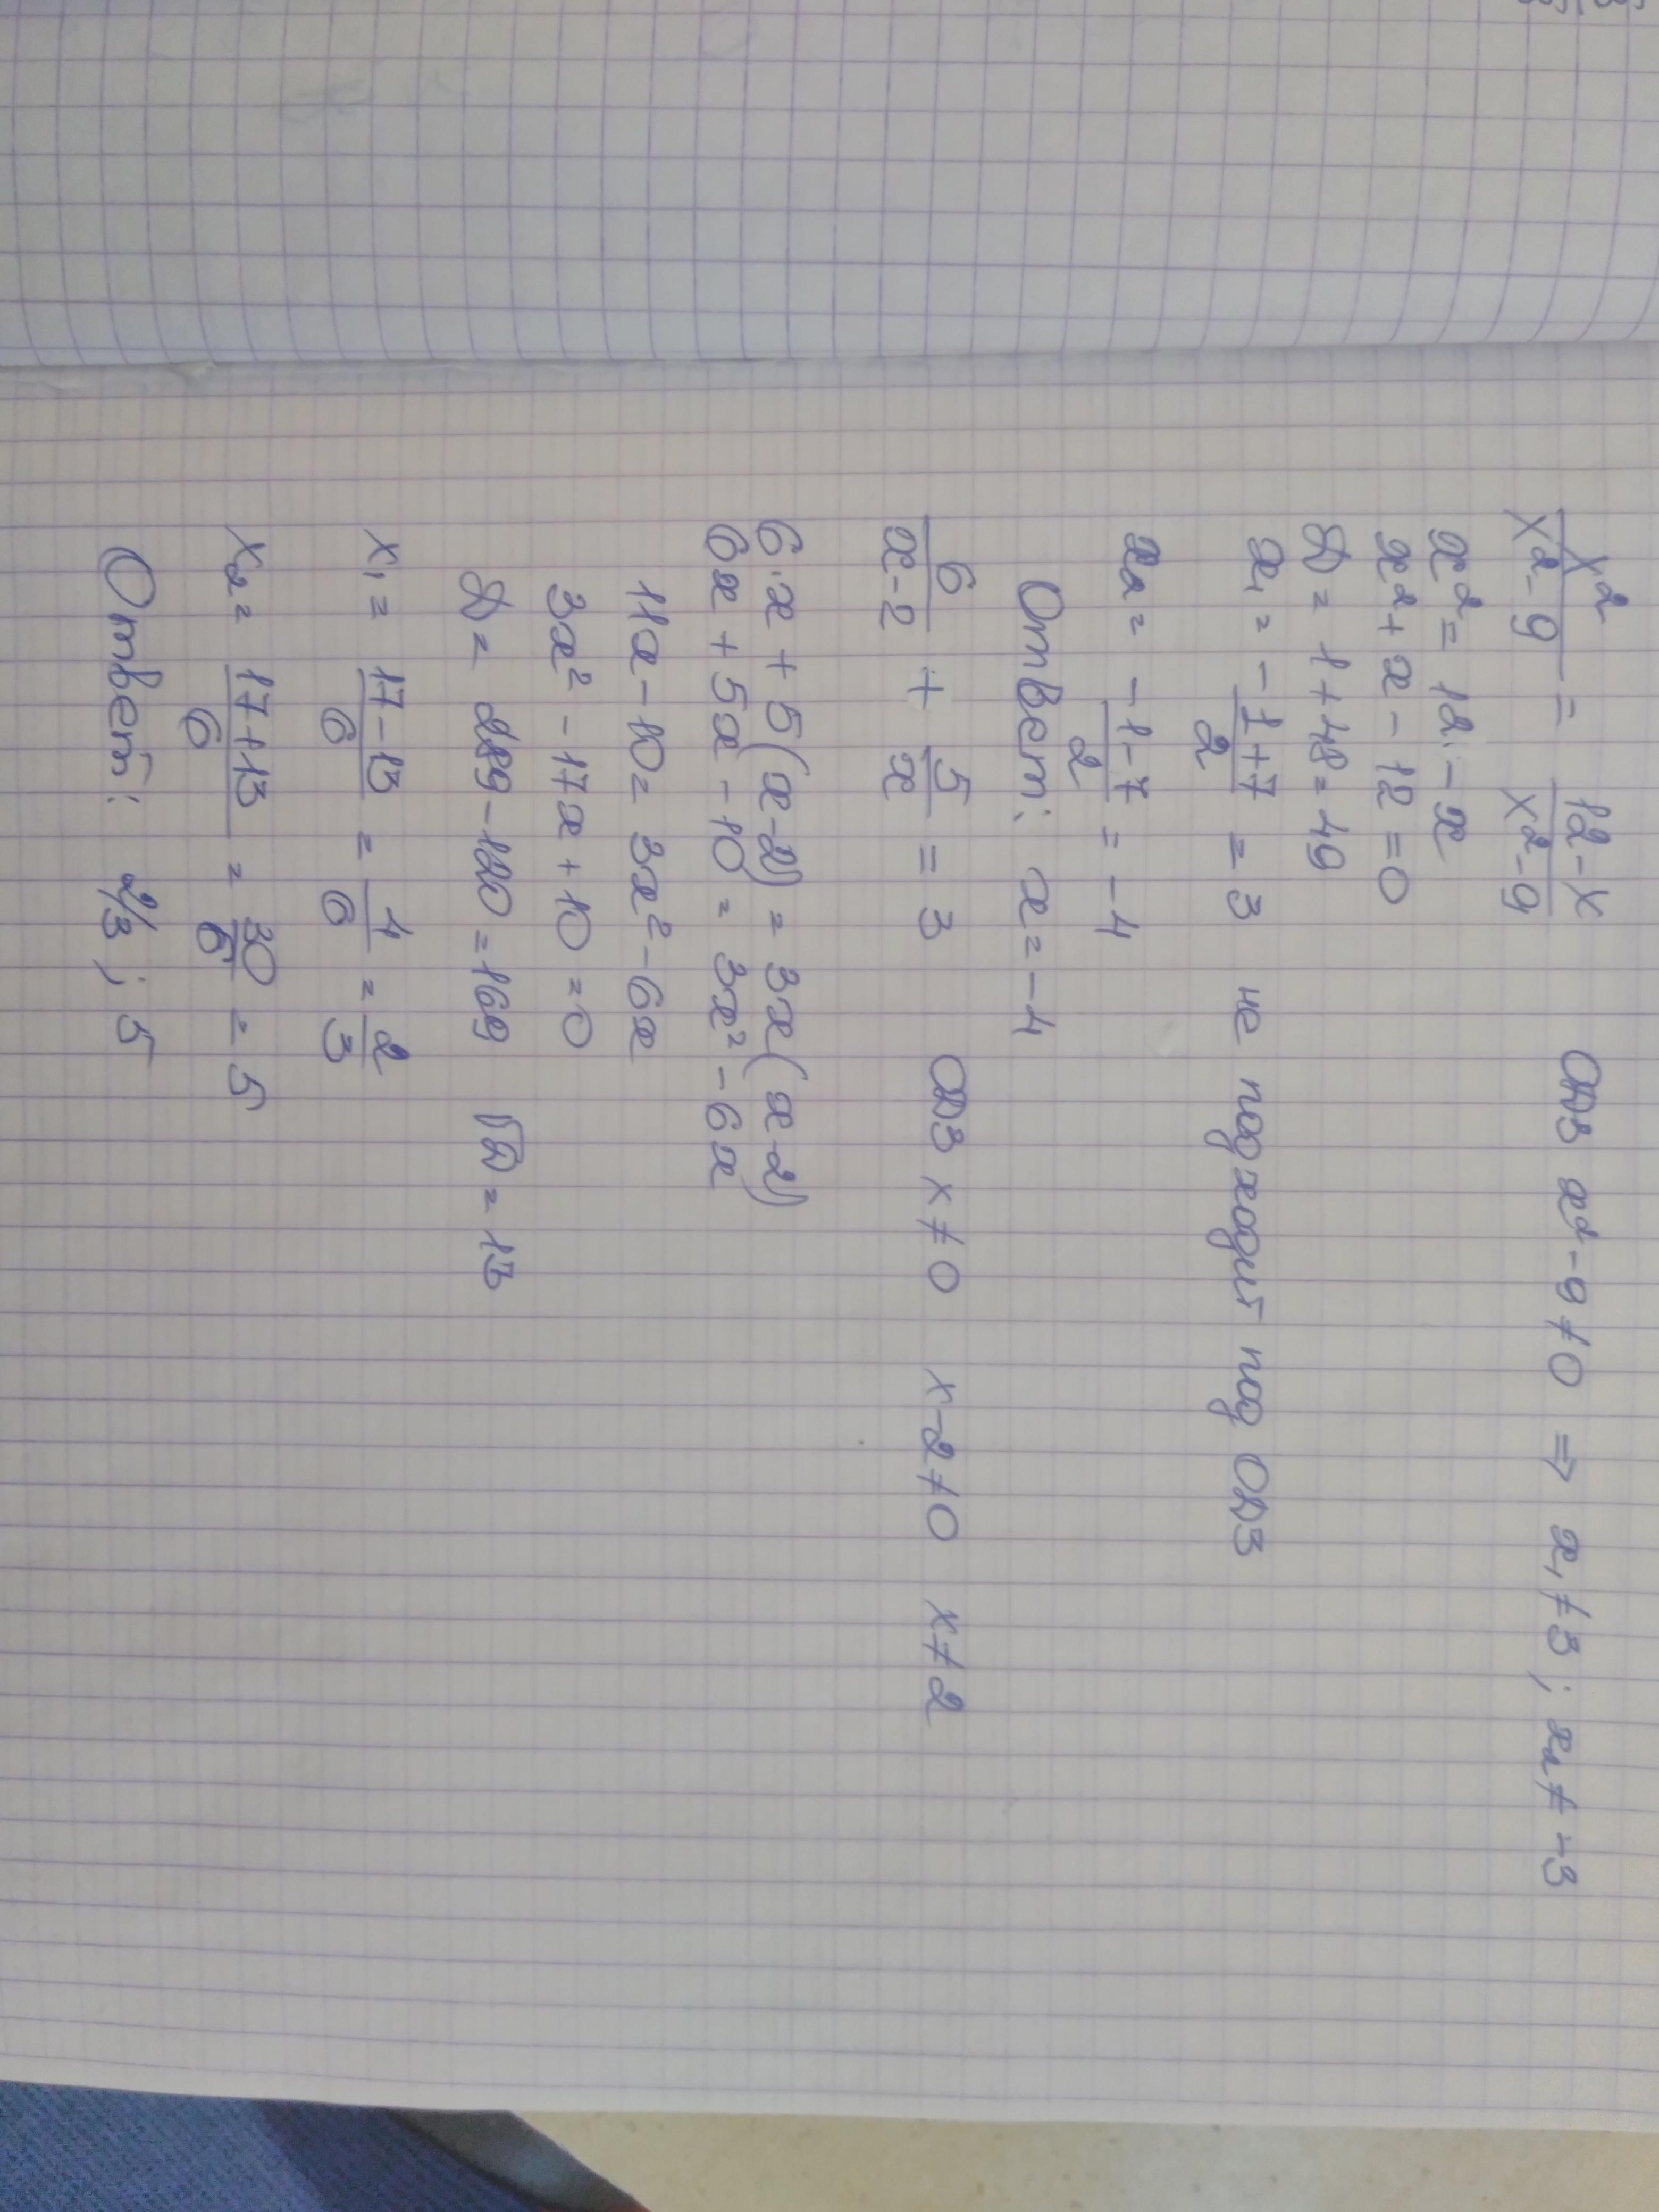 x²/(x²-9) = (12-x)/(x²-9) ОДЗ x²-9≠0 ⇒ x₁≠3; x₂≠-3
x² = 12 - x
x² + x - 12 = 0
D = 1 + 48 = 49
x₁ = -1+7/2 = 3 не подходит под ОДЗ
x₂ = -1-7/2 = -4
Ответ: x = -4
6/(x-2) + 5/x = 3 ОДЗ x≠0 x-2≠0 x≠2
6·x + 5(x-2) = 3x(x-2)
6x + 5x - 10 = 3x² - 6x
11x - 10 = 3x² - 6x
3x² - 17x + 10 = 0
D = 289 - 120 = 169 √D = 13
x₁ = 17-13/6 = 4/6 = 2/3
x₂ = 17+13/6 = 30/6 = 5
Ответ: 2/3; 5